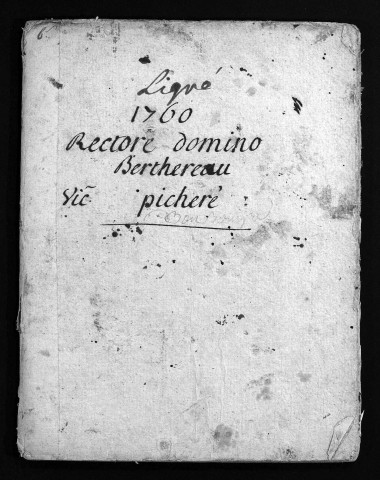 Ligné
1760
Rectore domino
Berthereau
Vic̃ picheré